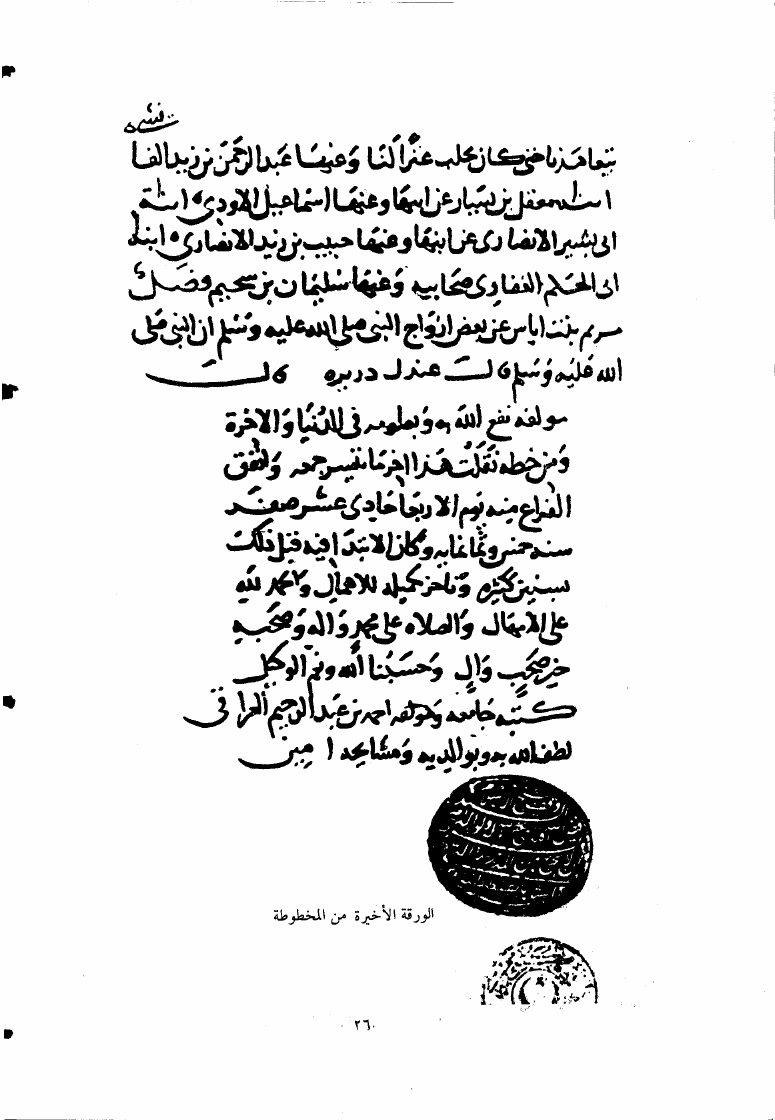 بتعاهد ناضحي كان يجلب عذبا لنا وعنها عبد الرحمن بن زيد
ابنة معقل بن يسار عن ابيها وعنها اسماعيل الاودي ه ابنة
ابي بشير الانصاري عن ابيها وعنها حبيب بن زيد الانصاري ه ابنة
ابي الحكم الغفاري صحابيه وعنها سليمان بن سحيم فصل
مريم بنت اياس عن بعض ازواج النبي صلى الله عليه وسلم ان النبي صلى
الله عليه وسلم قال عندك ذريره قالت
مولفه نفع الله به وبعلومه في الدنيا والاخرة
ومن خطه نقلت هذا اخر ما تيسر جمعه واتفق
الفراغ منه يوم الاربعا حادي عشر صفر
سنه خمس وثمانمايه وكان الابتدا فيه قبل ذلك
بسنين كثيره وتاخر تكميله للاهمال والحمد لله
على الامهال والصلاه على محمد واله وصحبه
خير صحب وال وحسبنا الله ونعم الوكيل
كتبه جامعه ومولفه احمد بن عبد الرحيم العراقي
لطف الله به وبوالديه ومشايخه امين
الورقة الأخيرة من المخطوطة
٢٦